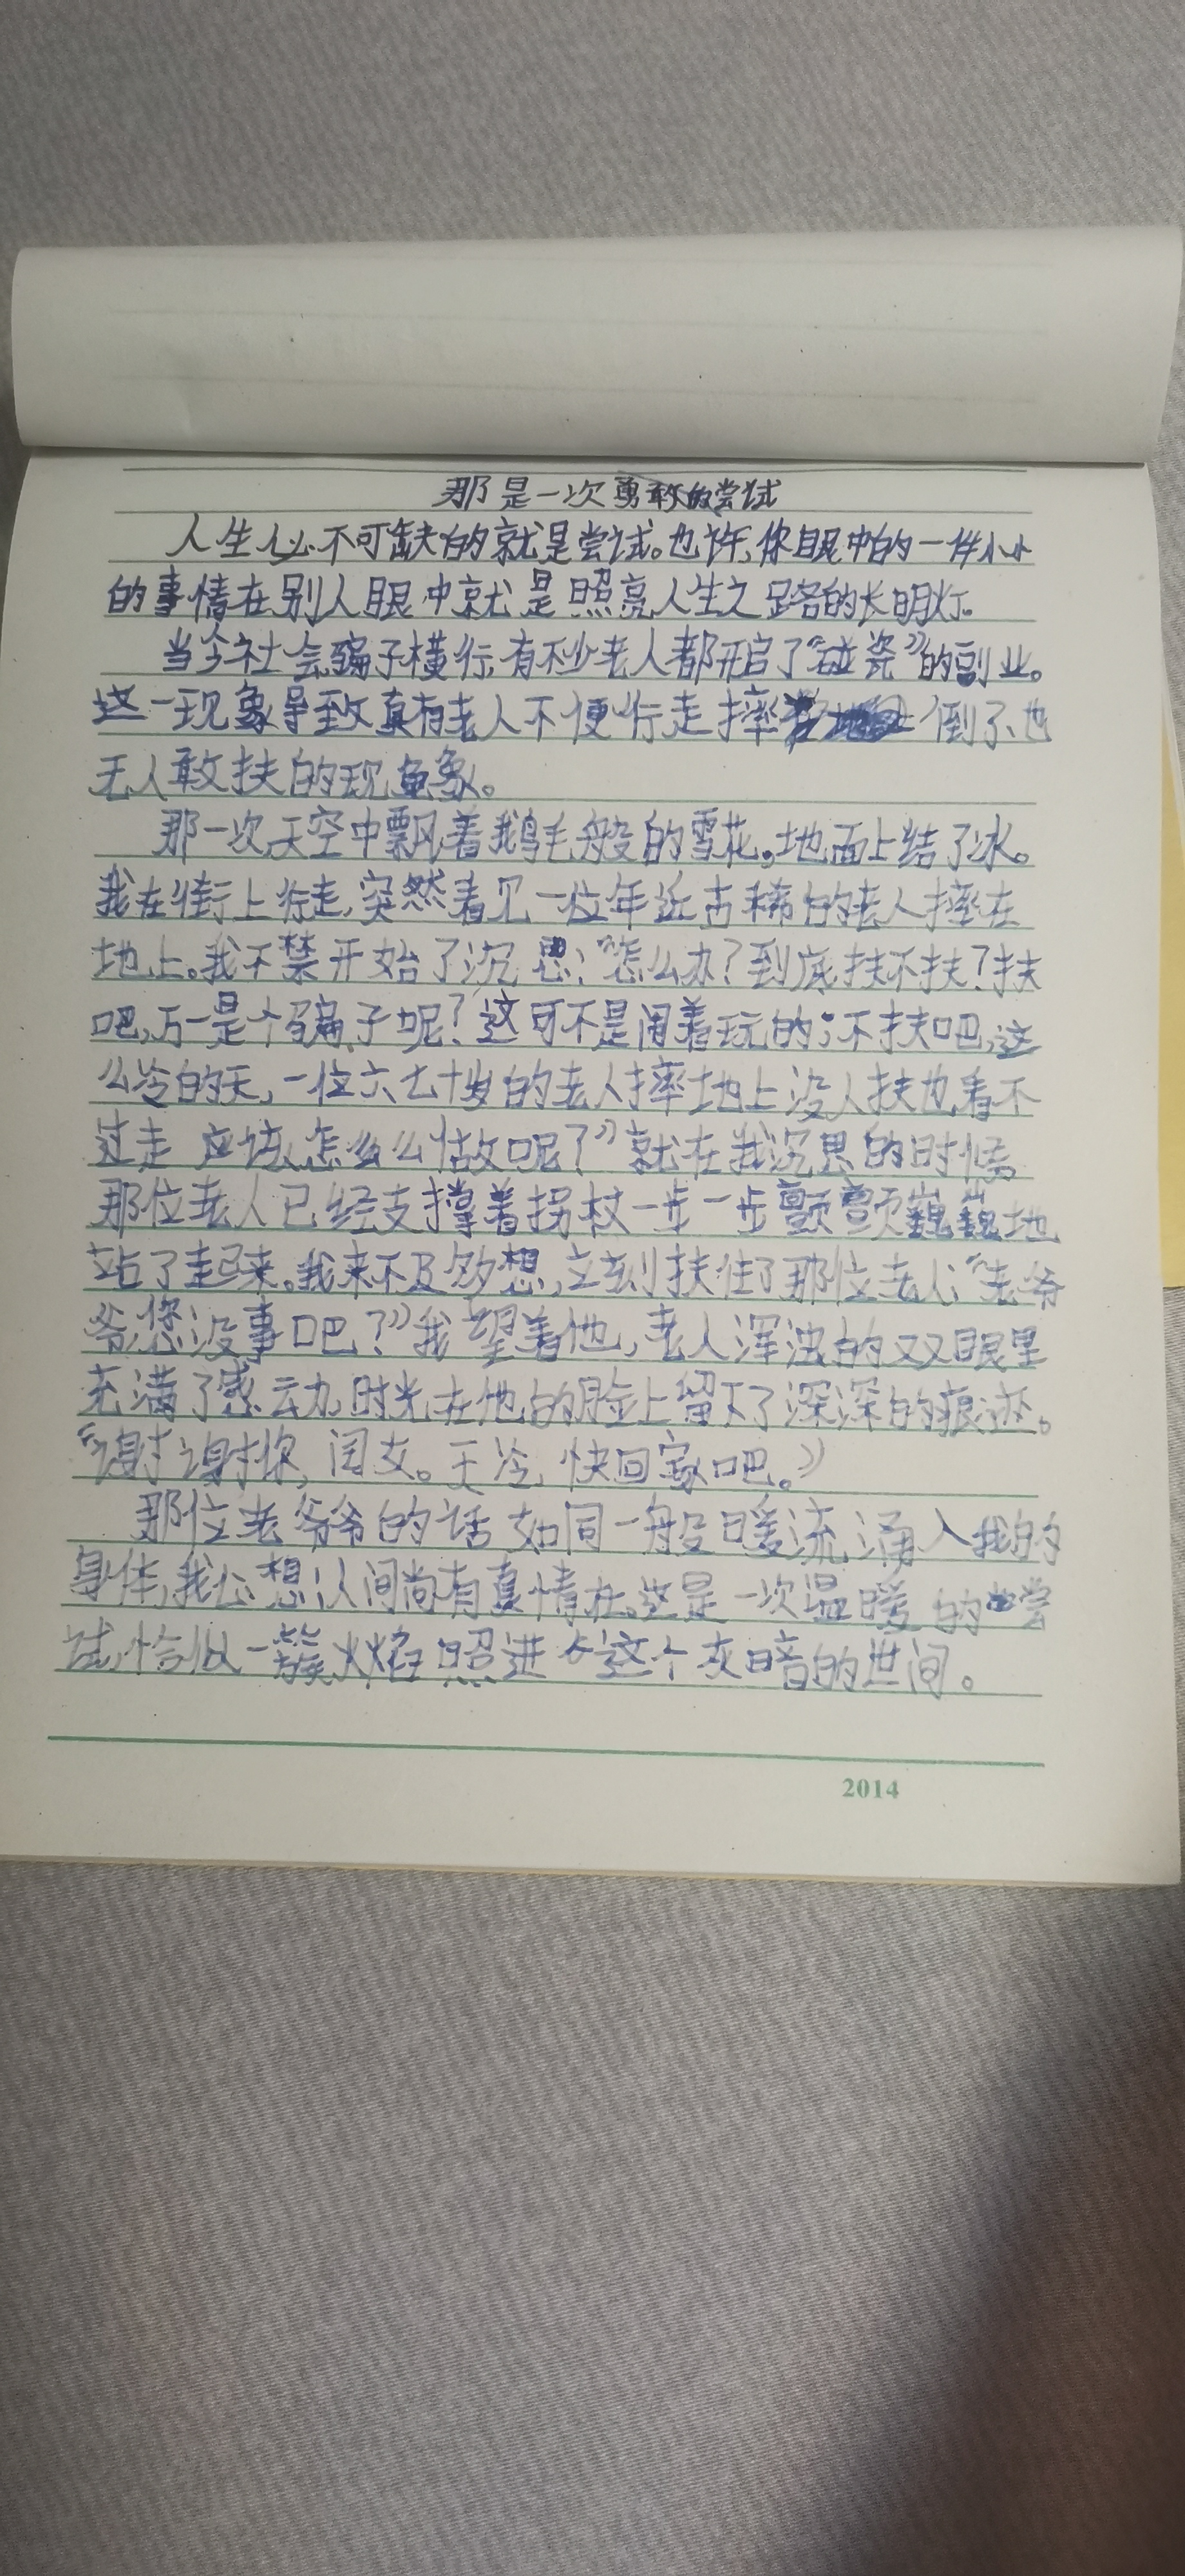 那是一次勇敢的尝试
人生必不可缺的就是尝试。也许,你眼中的一件小小
的事情在别人眼中就是照亮人生之路的长明灯。
当今社会骗子横行,有不少老人都开启了“碰瓷”的副业。
这一现象导致真有老人不便行走摔倒了,也
无人敢扶的现象。
那一次,天空中飘着鹅毛般的雪花,地面上结了冰。
我在街上行走,突然看见一位年近古稀的老人摔在
地上。我不禁开始了沉思:“怎么办?到底扶不扶?扶
吧,万一是个骗子呢?这可不是闹着玩的;不扶吧,这
么冷的天,一位六七十岁的老人摔地上没人扶也看不
过走 应该怎么么做呢?”就在我沉思的时候,
那位老人已经支撑着拐杖一步一步颤颤巍巍地
站了起来。我来不及多想,立刻扶住了那位老人:“老爷
爷,您没事吧?”我望着他,老人浑浊的双眼里
充满了感动,时光在他的脸上留下了深深的痕迹。
“谢谢你,闺女。天冷,快回家吧。”
那位老爷爷的话如同一般暖流涌入我的
身体,我心想:人间尚有真情在。这是一次温暖的尝
试,恰似一簇火焰照进这个灰暗的世间。
2014